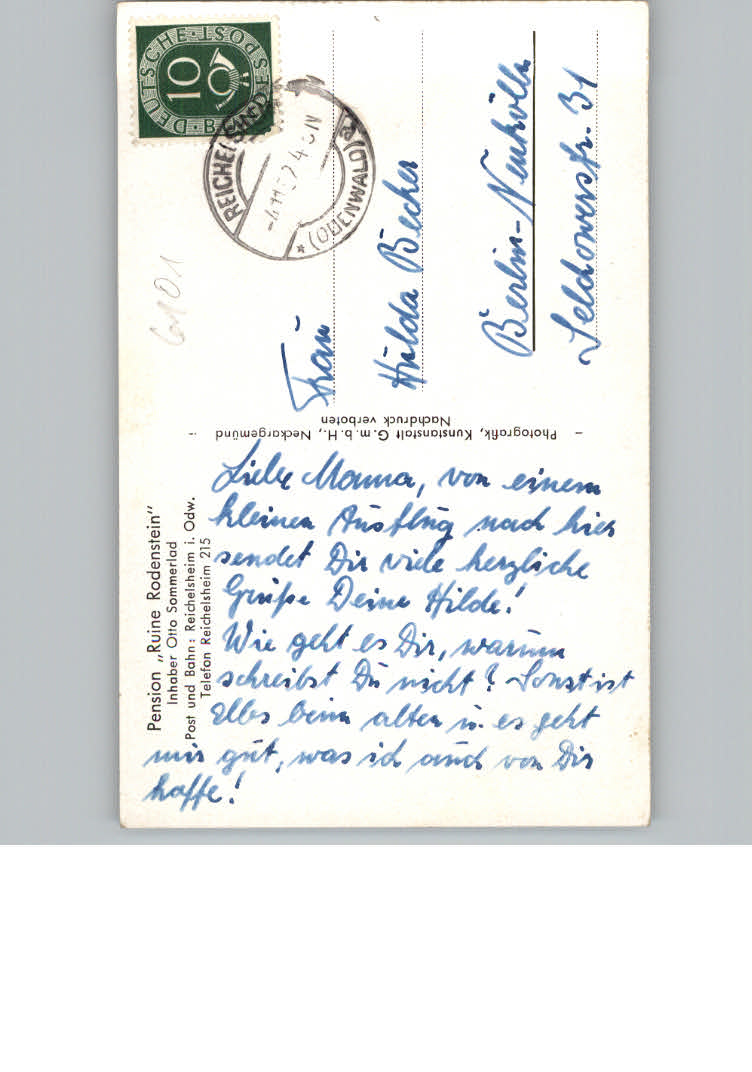 DEUTSCHE BUNDESPOST
10
REICHELSHEIM
(ODENWALD) a
-4.11.52
6101
Frau
Hulda Becher
Berlin-Neukölln
Selchowerstr. 31
- Photografik, Kunstanstalt G.m.b.H., Neckargemünd
Nachdruck verboten
Pension „Ruine Rodenstein"
Inhaber Otto Sommerlad
Post und Bahn: Reichelsheim i. Odw.
Telefon Reichelsheim 215
Liebe Mama, von einem
kleinen Ausflug nach hier
sendet Dir viele herzliche
Grüße Deine Hilde!
Wie geht es Dir, warum
schreibst Du nicht? Sonst ist
alles beim alten u. es geht
mir gut, was ich auch von Dir
hoffe!